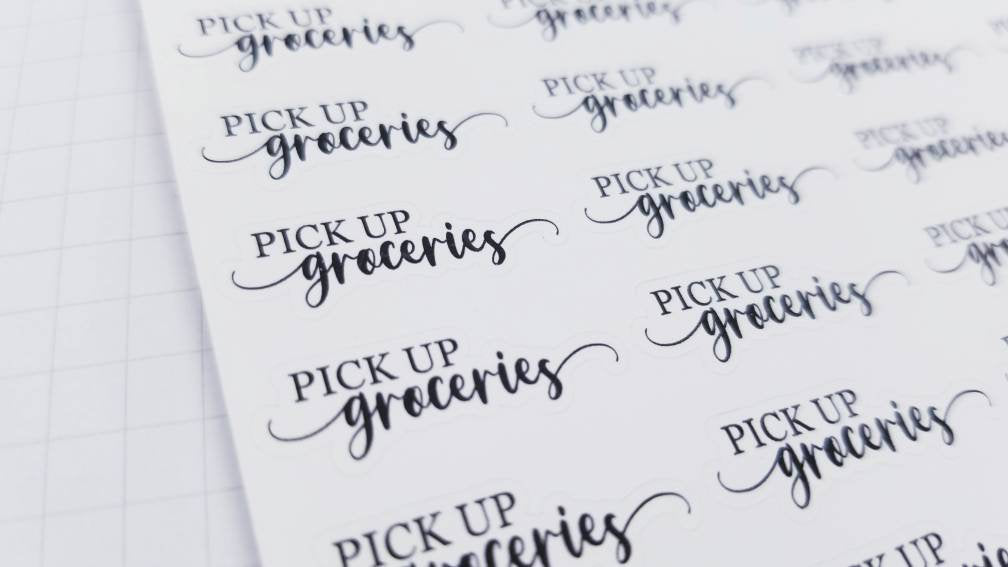 PICK UP
groceries
PICK UP
groceries
PICK UP
groceries
PICK UP
groceries
PICK UP
groceries
PICK UP
groceries
PICK UP
groceries
PICK UP
groceries
PICK UP
groceries
PICK UP
groceries
PICK UP
groceries
PICK UP
gro
PICK UP
groceries
PICK UP
groceries
CK UP